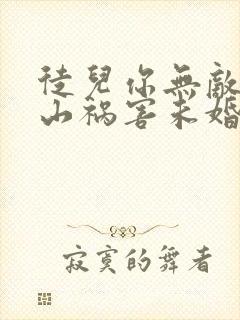 徒兒你無敵
山禍害未婚
寂寞的舞者